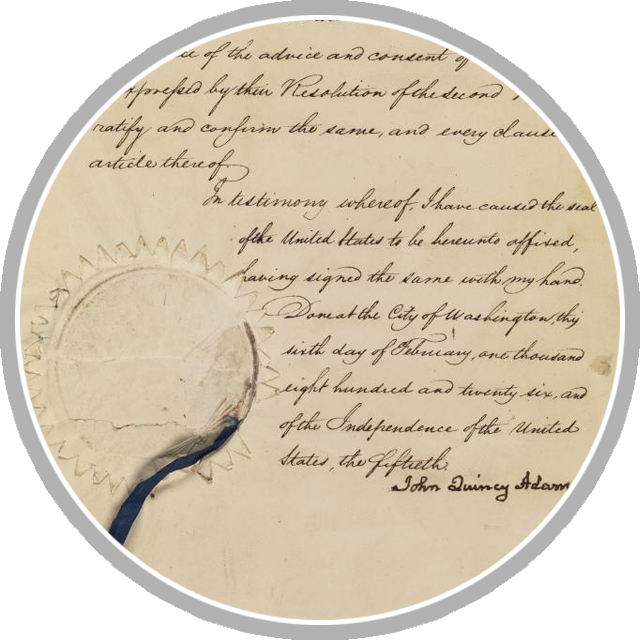 of the advice and consent of
expressed by their Resolution of the second,
ratify and confirm the same, and every clause
article thereof.
In testimony whereof, I have caused the seal
of the United States to be hereunto affixed,
having signed the same with my hand.
Done at the City of Washington, this
sixth day of February, one thousand
eight hundred and twenty six, and
of the Independence of the United
States, the fiftieth.
John Quincy Adams